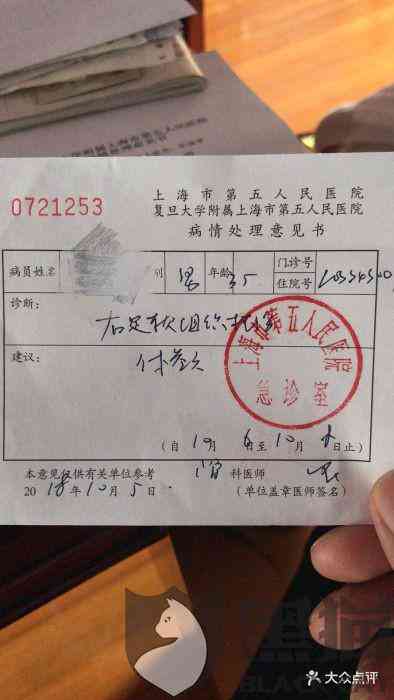 0721253
上海市第五人民医院
复旦大学附属上海市第五人民医院
病情处理意见书
病员姓名 别 男 年龄 35 门诊号
住院号
诊断:
右足软组织挫伤
建议: 休叁天
上海市第五人民医院
急诊室
(自10月6日至10月8日止)
本意见仅供有关单位参考 科医师
2018年10月5日 (单位盖章医师签名)
黑猫
BLACK
大众点评